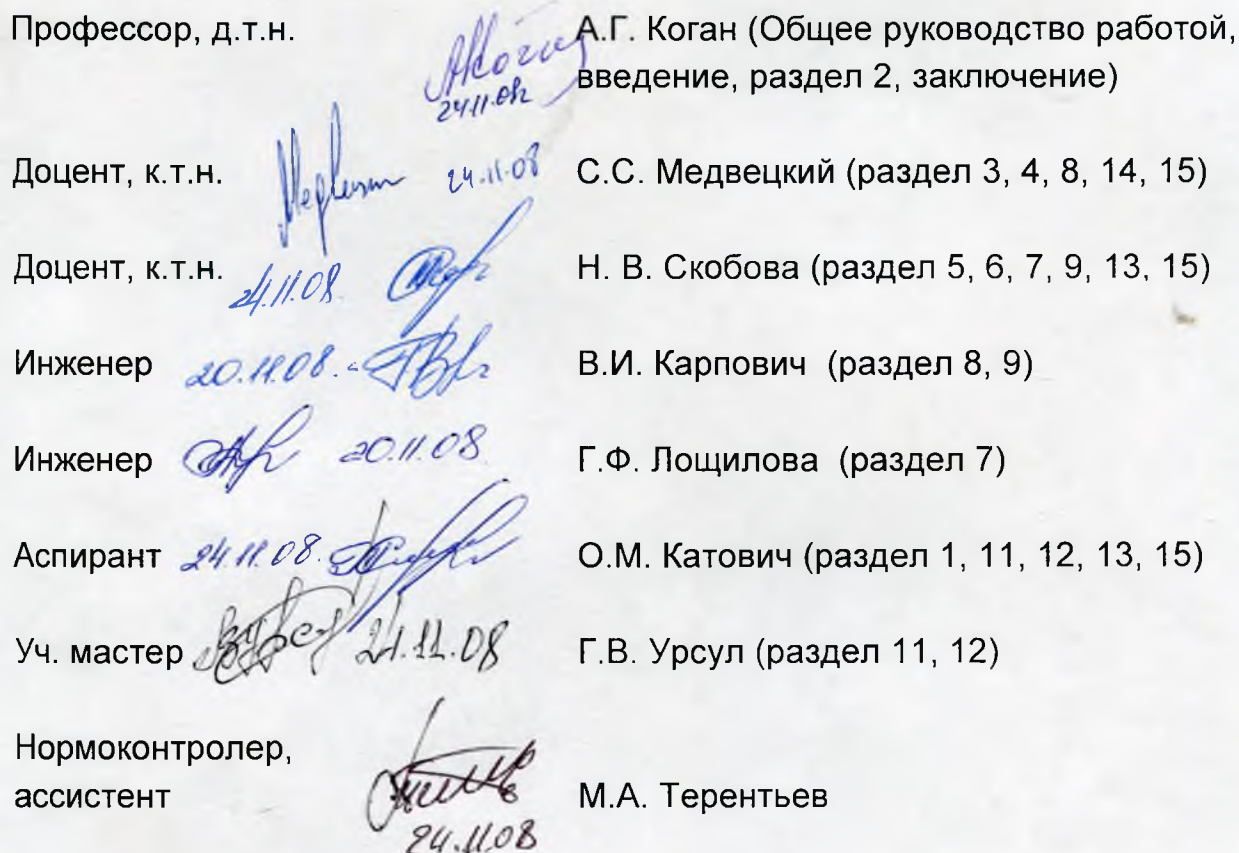 Профессор, д.т.н. А.Г. Коган (Общее руководство работой,
24.11.08 введение, раздел 2, заключение)
Доцент, к.т.н. 24.11.08 С.С. Медвецкий (раздел 3, 4, 8, 14, 15)
Доцент, к.т.н. 24.11.08 Н. В. Скобова (раздел 5, 6, 7, 9, 13, 15)
Инженер 20.11.08. В.И. Карпович (раздел 8, 9)
Инженер 20.11.08 Г.Ф. Лощилова (раздел 7)
Аспирант 24.11.08. О.М. Катович (раздел 1, 11, 12, 13, 15)
Уч. мастер 21.11.08 Г.В. Урсул (раздел 11, 12)
Нормоконтролер,
ассистент М.А. Терентьев
24.11.08